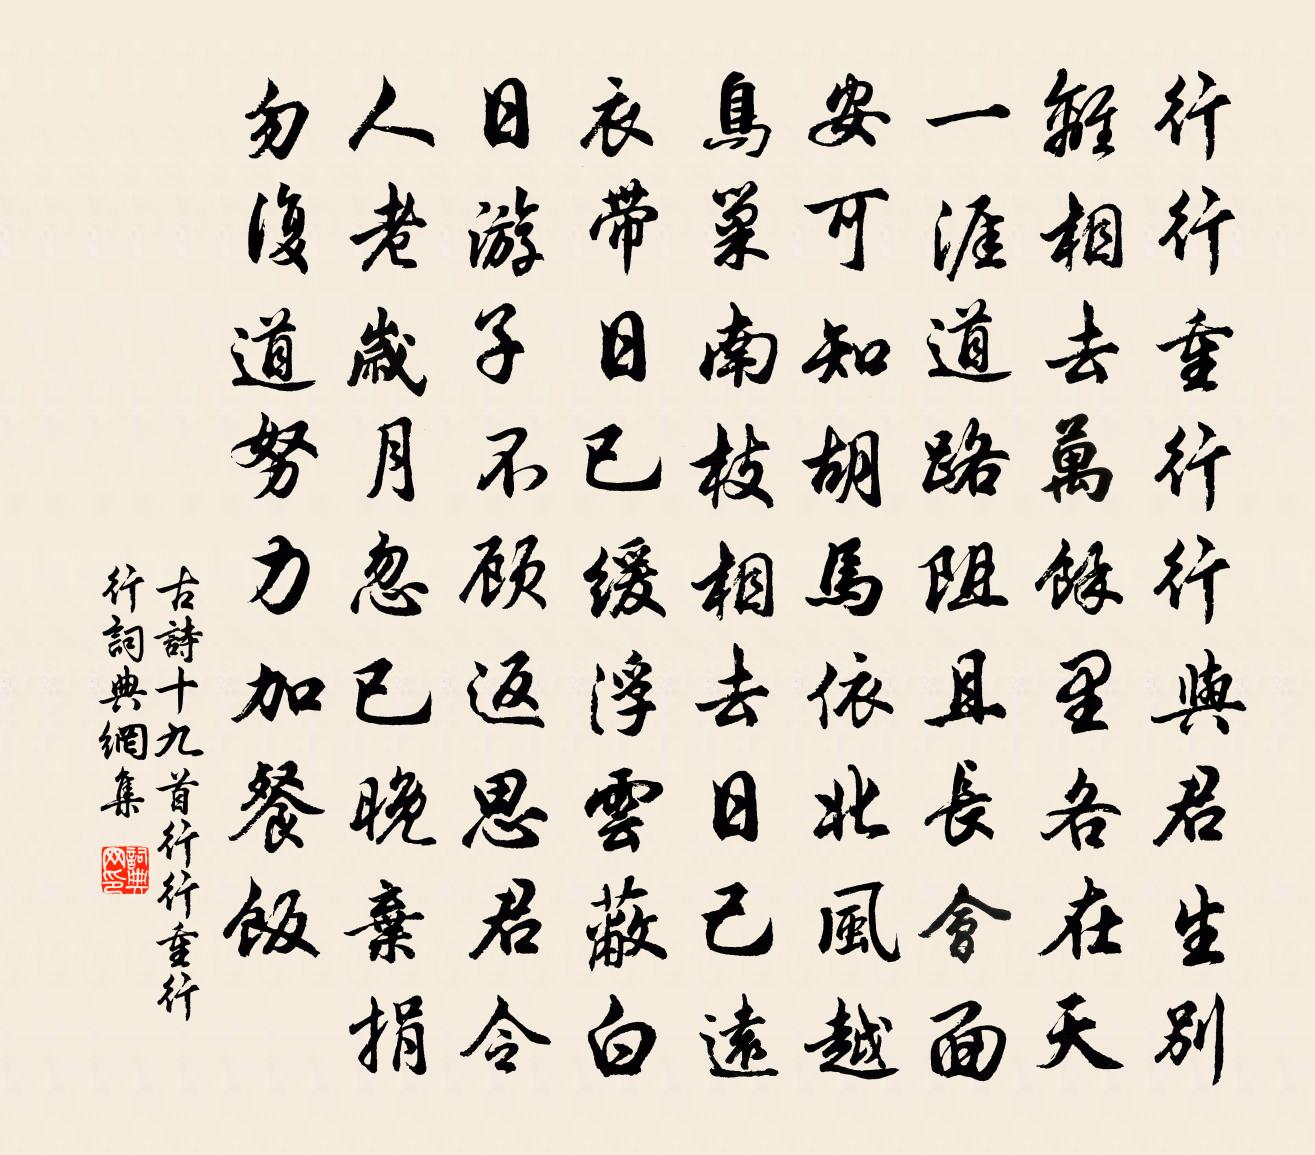 行行重行行與君生別
離相去萬餘里各在天
一涯道路阻且長會面
安可知胡馬依北風越
鳥巢南枝相去日已遠
衣帶日已緩浮雲蔽白
日游子不顧返思君令
人老歲月忽已晚棄捐
勿復道努力加餐飯
古詩十九首行行重行
行詞典網集
詞典
网印